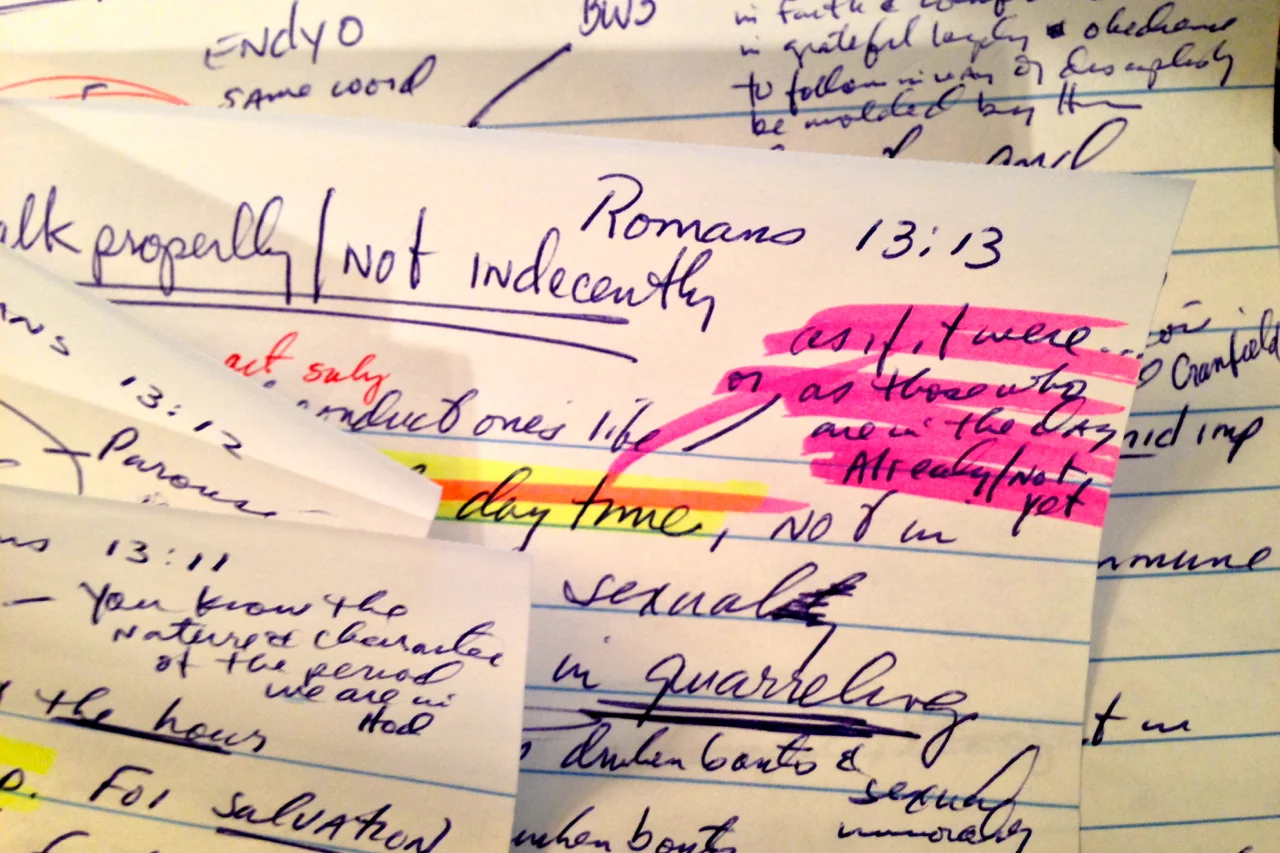 ENdyO
SAme word
BWS
in faith &
in grateful loyalty & obedience
to follow in way of discipleship
be molded by Him
and
Romans 13:13
alk properlly / Not Indecently
as if it were...
or as those who
are in the day
Already/Not
yet
Cranfield
act
conduct one's life
day time, Not in
sexual
in quarreling
drunken bouts &
sexual
immorality
drunken bouts
mmune
t in
13:12
13:11
— You know the
Nature & character
of the period
we are in
Hod
the hour
p. For SalvAtion